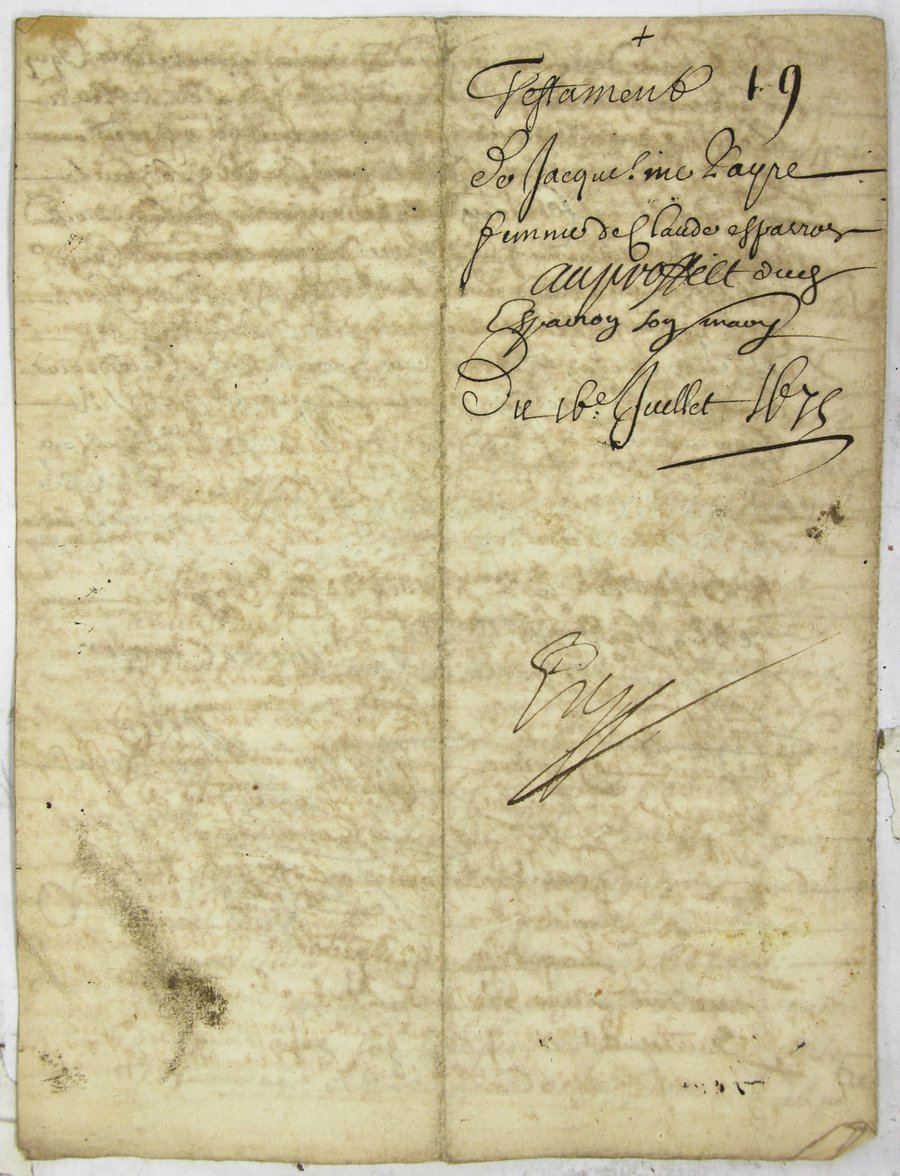 +
Testament 19
de Jacqueline Rayre
femme de Claude esparron
au proffeict dud
Esparron son mary
Du 16e Juillet 1675